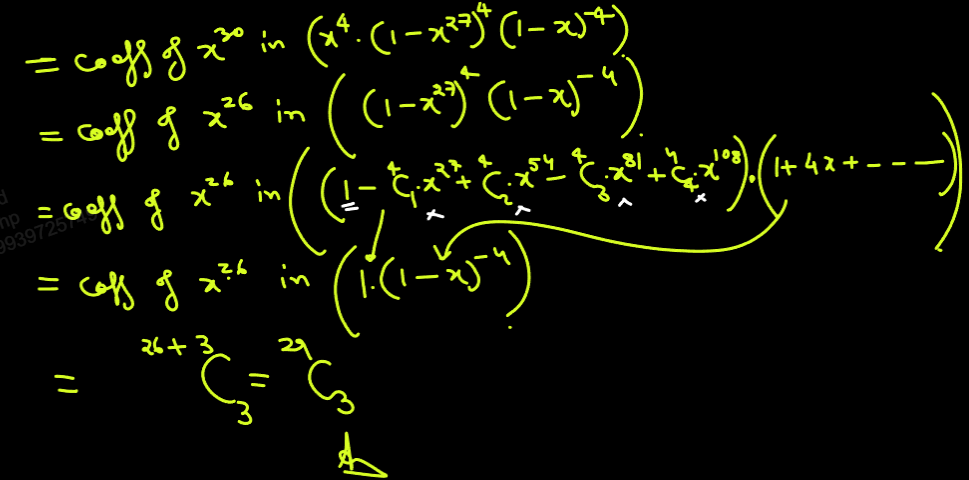 = coeff of x³⁰ in (x⁴·(1-x²⁷)⁴(1-x)⁻⁴)
= coeff of x²⁶ in ((1-x²⁷)⁴(1-x)⁻⁴)
= coeff of x²⁶ in ((1-⁴C₁·x²⁷+⁴C₂·x⁵⁴-⁴C₃·x⁸¹+⁴C₄·x¹⁰⁸)·(1+4x+-----))
= coeff of x²⁶ in (1·(1-x)⁻⁴)
= ²⁶⁺³C₃ = ²⁹C₃
A